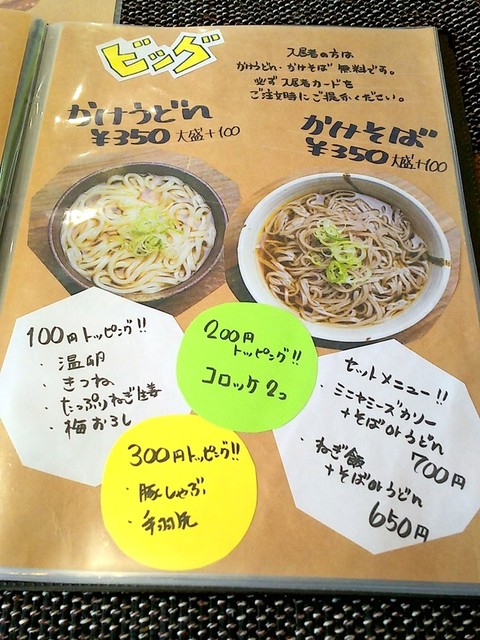 ビッグ
入居者の方は
かけうどん・かけそば 無料です。
必ず入居者カードを
ご注文時にご提示ください。
かけうどん
¥350 大盛+100
かけそば
¥350 大盛+100
100円トッピング!!
・温卵
・きつね
・たっぷりねぎ生姜
・梅おろし
200円
トッピング!!
コロッケ2コ
300円トッピング!!
・豚しゃぶ
・手羽先
セットメニュー!!
・ミニヤミーズカリー
+そばorうどん
700円
・ねぎ飯
+そばorうどん
650円